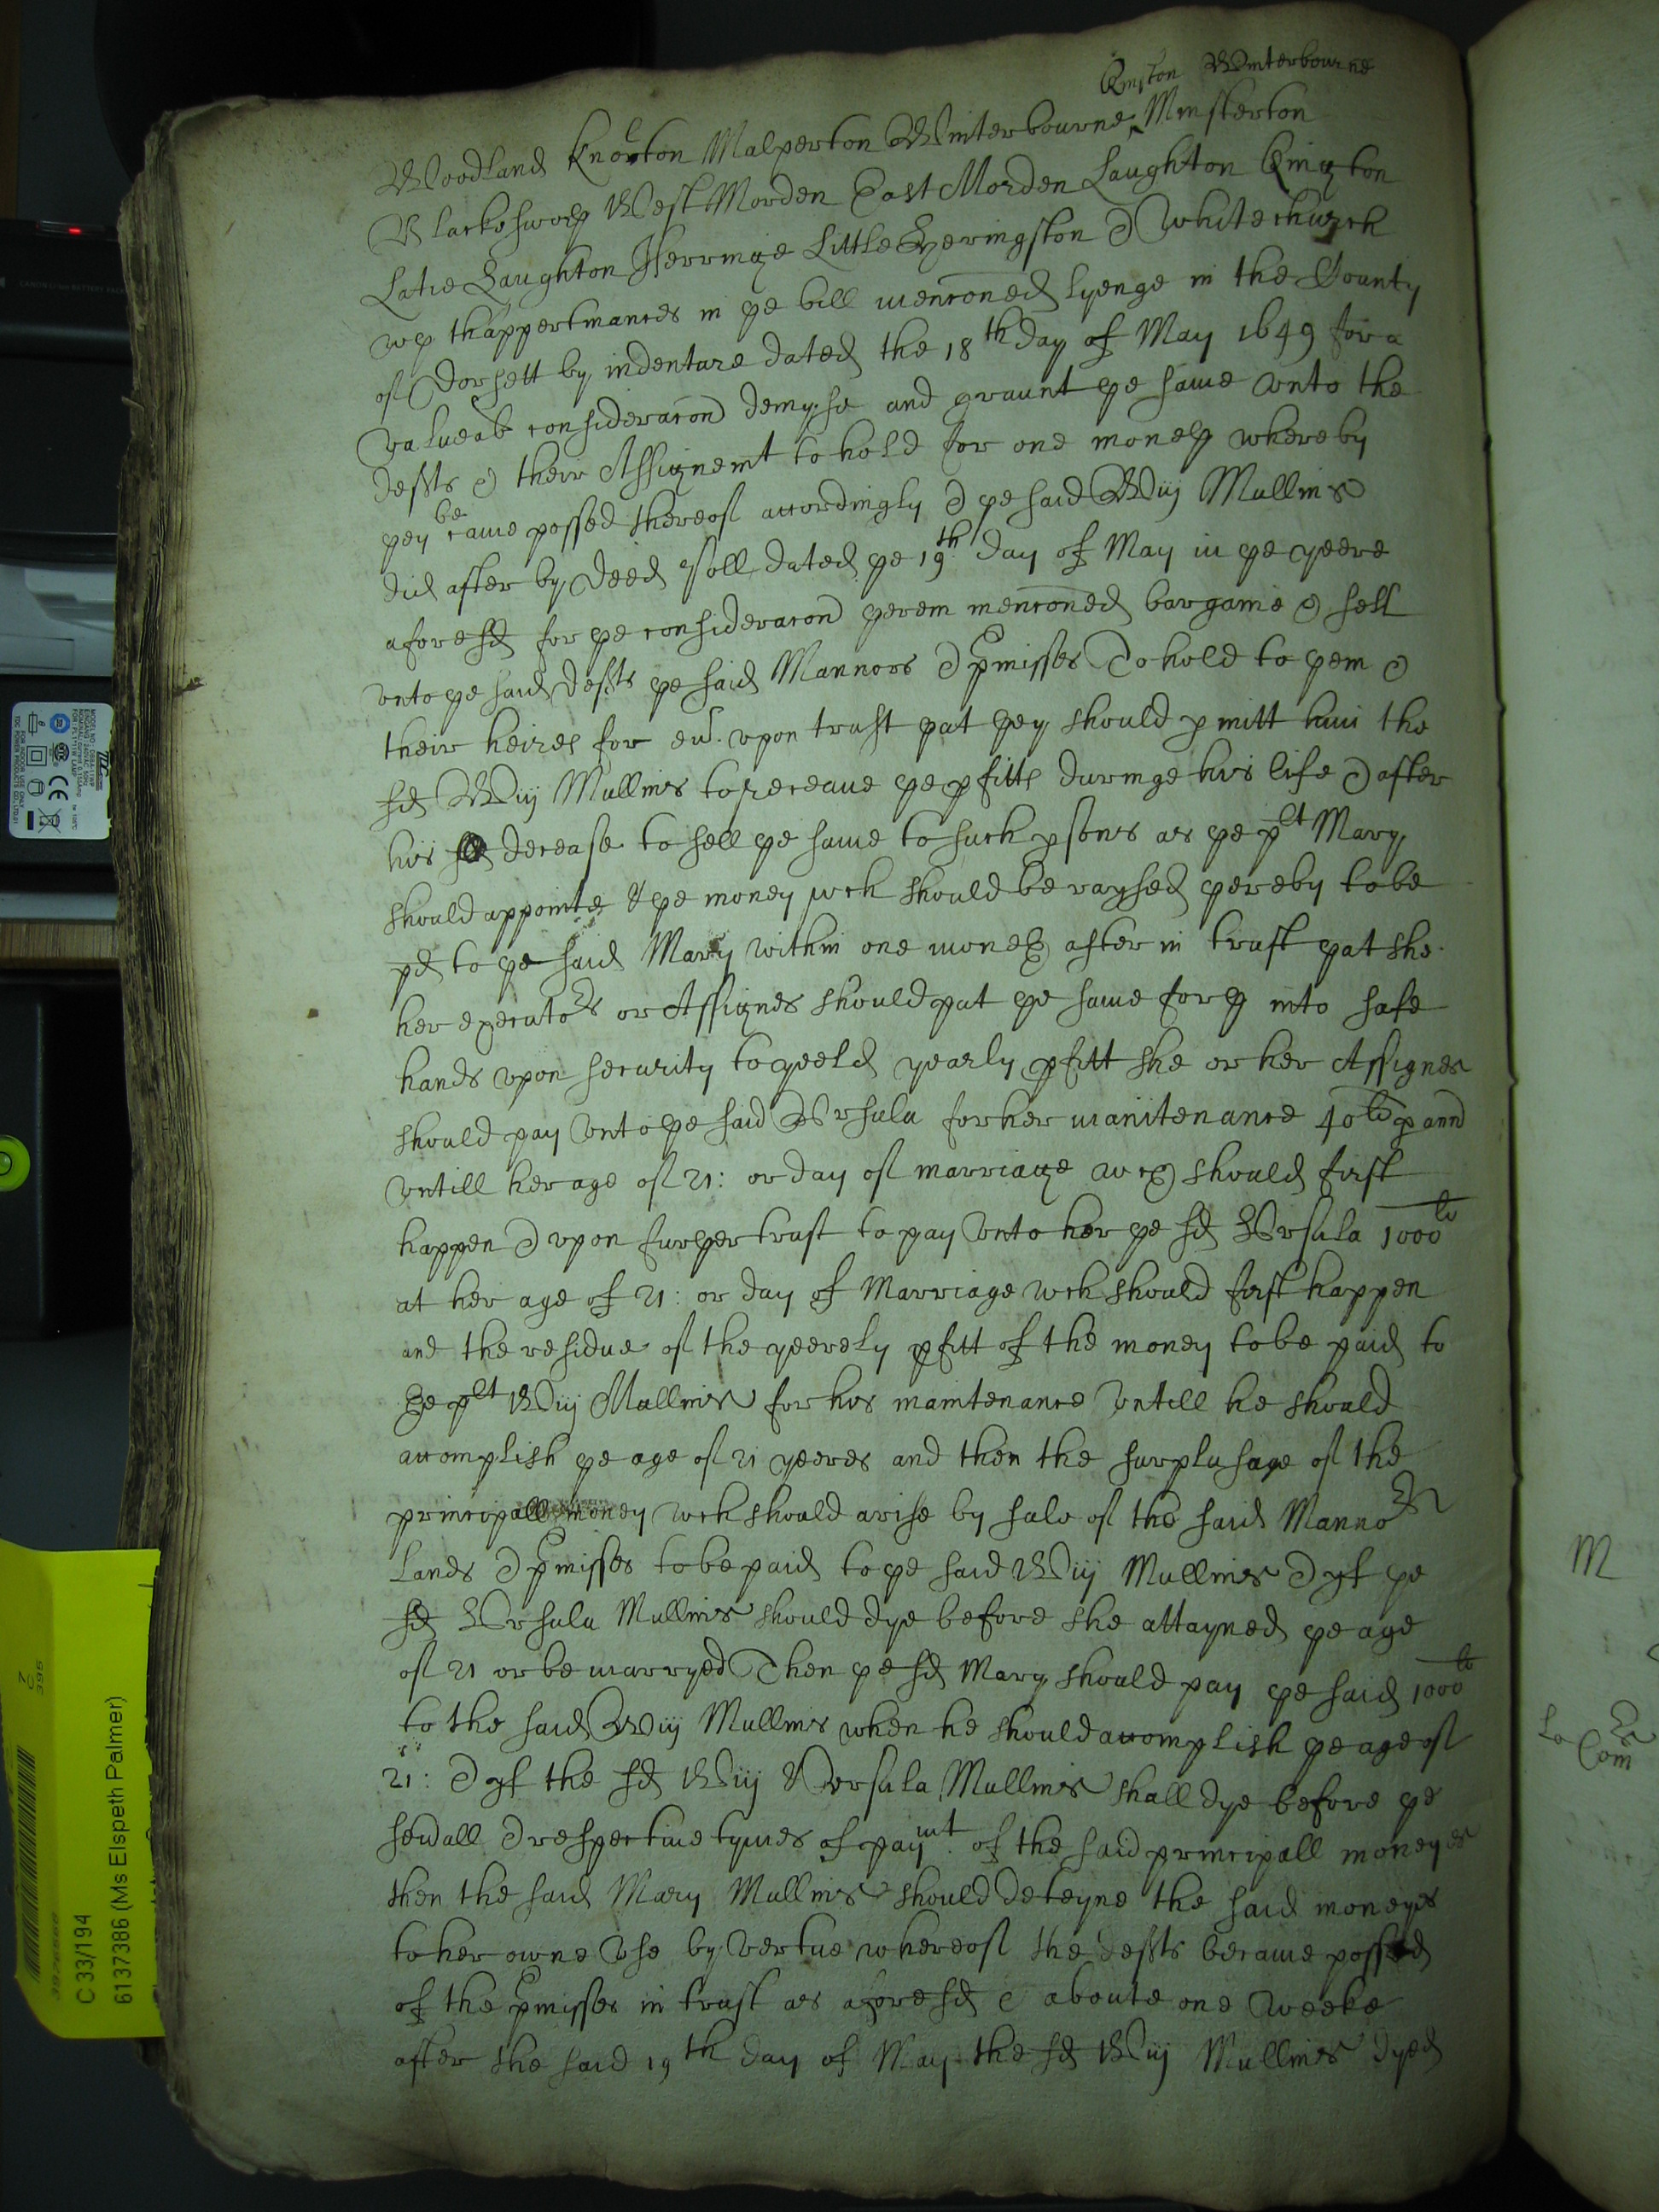 Quiston Winterbourne
Woodland Knolton Malperton Winterbourne Minsterton
West Morden East Morden Laughton Kington
Laughton Herringe Little & Whitechurch
wth thappertinances in ye bill mencōned lyenge in the County
of Dorsett by indenture dated the 18th day of May 1649 for a
valueab consideracōn demyse and graunt ye same vnto the
defts & their Assignemt to hold for one moneth whereby
yey became possed thereof accordingly & ye said Wm Mullins
did after by Deed poll dated ye 19th day of May in ye yeere
aforesd for ye consideracōn yerein mencōned bargaine & sell
vnto ye said defts ye said Mannors & pmisses To hold to yem &
their heires for eu. vpon trust yat yey should pmitt him the
sd Wm Mullins to receaue ye pfitts duringe his life & after
his decease to sell ye same to such psons as ye plt Mary
should appointe & ye money wch should be raysed yereby to be
pd to ye said Mary within one moneth after in trust yat she
her executors or Assignes should put ye same forth into safe
hands vpon security to yeeld yearly pfitt she or her Assignes
should pay vnto ye said Vrsula for her maintenance 40li p ann
vntill her age of 21: or day of marriage wch should first
happen & vpon furyer trust to pay vnto her ye sd Vrsula 1000li
at her age of 21: or day of Marriage wch should first happen
and the residue of the yeerely pfitt of the money to be paid to
ye plt Wm Mullins for his maintenance vntill he should
accomplish ye age of 21 yeeres and then the surplusage of the
principall money wch should arise by sale of the said Mannors
Lands & pmisses to be paid to ye said Wm Mullins & yf ye
sd Vrsula Mullins should dye before she attayned ye age
of 21 or be marryed Then ye sd Mary should pay ye said 1000li
to the said Wm Mullins when he should accomplish ye age of
21: & yf the sd Wm & Vrsula Mullins shall dye before ye
seuall & respectiue tymes of paymt. of the said principall moneyes
then the said Mary Mullins should deteyne the said moneyes
to her owne vse by vertue whereof the defts became possed
of the pmisses in trust as aforesd & aboute one weeke
after the said 19th day of May the sd Wm Mullins dyed
M
Com
C 33/194
6137386 (Ms Elspeth Palmer)